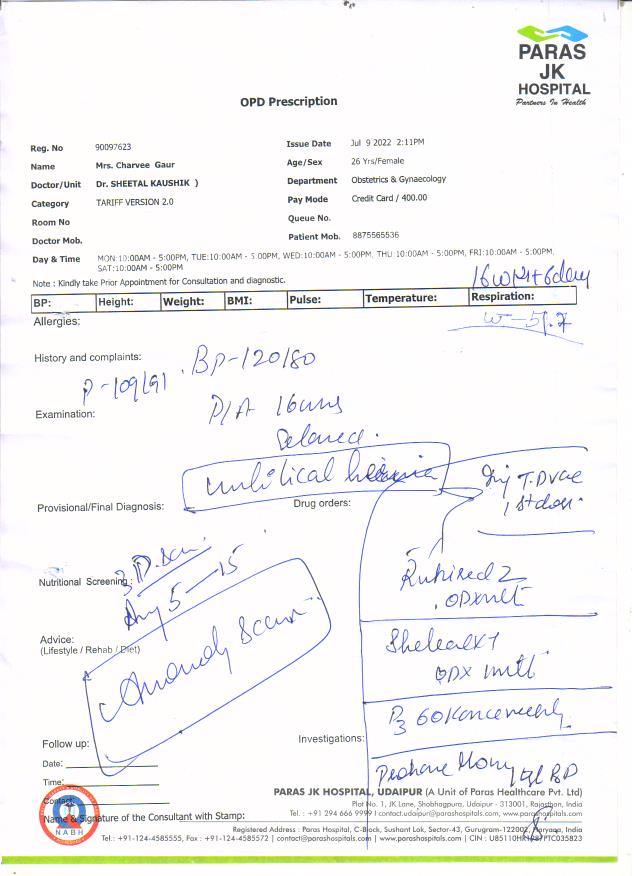 PARAS
JK
HOSPITAL
Partners In Health
OPD Prescription
Reg. No 90097623 Issue Date Jul 9 2022 2:11PM
Name Mrs. Charvee Gaur Age/Sex 26 Yrs/Female
Doctor/Unit Dr. SHEETAL KAUSHIK ) Department Obstetrics & Gynaecology
Category TARIFF VERSION 2.0 Pay Mode Credit Card / 400.00
Room No Queue No.
Doctor Mob. Patient Mob. 8875565536
Day & Time MON:10:00AM - 5:00PM, TUE:10:00AM - 5:00PM, WED:10:00AM - 5:00PM, THU:10:00AM - 5:00PM, FRI:10:00AM - 5:00PM,
SAT:10:00AM - 5:00PM
Note : Kindly take Prior Appointment for Consultation and diagnostic.
BP: Height: Weight: BMI: Pulse: Temperature: Respiration:
Allergies:
History and complaints: BP-120/80
P-109/91
Examination: P/A 16wms
Relaxed.
umbilical hernia
Provisional/Final Diagnosis: Drug orders:
Inj T.
1st dose
Nutritional Screening:
5 — 15
Advice:
(Lifestyle / Rehab / Diet)
Anomaly Scan
60K
Follow up: Investigations:
Date:
Time:
Contact:
Name & Signature of the Consultant with Stamp:
NABH
PARAS JK HOSPITAL, UDAIPUR (A Unit of Paras Healthcare Pvt. Ltd)
Plot No. 1, JK Lane, Shobhagpura, Udaipur - 313001, Rajasthan, India
Tel. : +91 294 666 9999 | contact.udaipur@parashospitals.com, www.parashospitals.com
Registered Address : Paras Hospital, C-Block, Sushant Lok, Sector-43, Gurugram-122002, Haryana, India
Tel. : +91-124-4585555, Fax : +91-124-4585572 | contact@parashospitals.com | www.parashospitals.com | CIN : U85110HR1987PTC035823